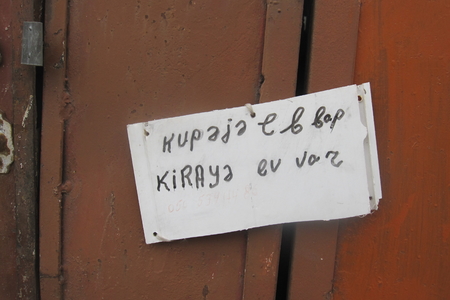 кирәјә е в вар
KiRAYə ev var